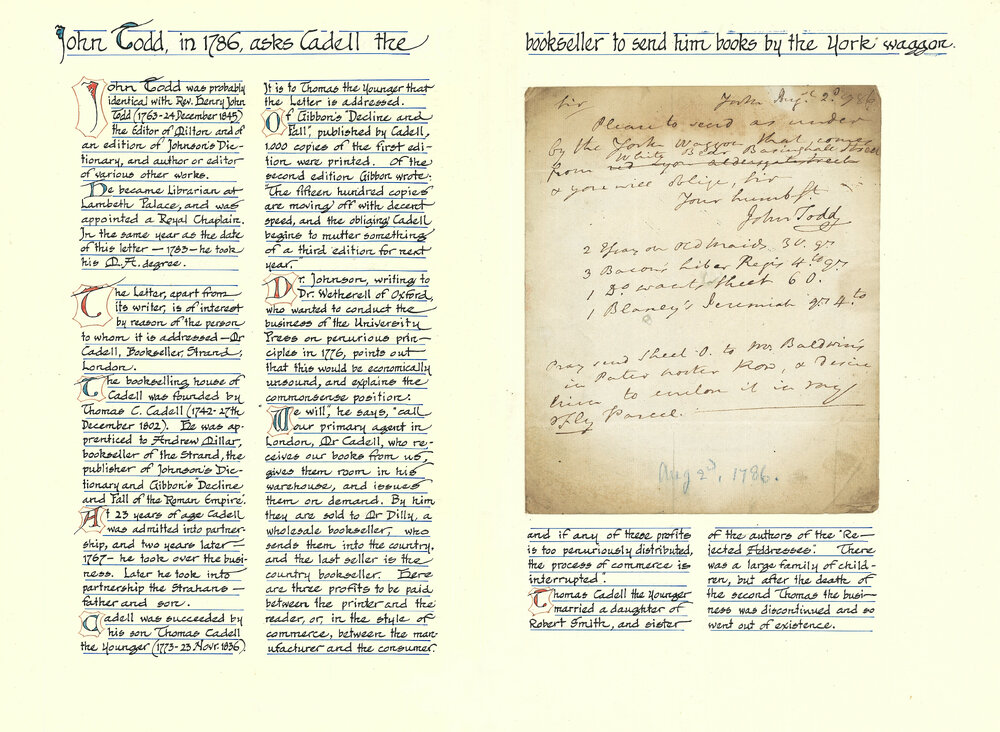 John Todd, in 1786, asks Cadell the bookseller to send him books by the York waggon.
John Todd was probably
identical with Rev. Henry John
Todd (1763-24 December 1845)
the Editor of Milton and of
an edition of Johnson's Dic-
tionary, and author or editor
of various other works.
He became Librarian at
Lambeth Palace, and was
appointed a Royal Chaplain.
In the same year as the date
of this letter — 1783 — he took
his M.A. degree.
The Letter, apart from
its writer, is of interest
by reason of the person
to whom it is addressed — Mr
Cadell, Bookseller, Strand,
London.
The bookselling house of
Cadell was founded by
Thomas C. Cadell (1742-27th
December 1802). He was ap-
prenticed to Andrew Millar,
bookseller of the Strand, the
publisher of Johnson's Dic-
tionary and Gibbon's Decline
and Fall of the Roman Empire.
At 23 years of age Cadell
was admitted into partner-
ship, and two years later —
1767 — he took over the busi-
ness. Later he took into
partnership the Strahans —
father and son.
Cadell was succeeded by
his son Thomas Cadell
the Younger (1773-23 Novr. 1836)
It is to Thomas the Younger that
the Letter is addressed.
Of Gibbon's "Decline and
Fall", published by Cadell,
1,000 copies of the first edi-
tion were printed. Of the
second edition Gibbon wrote:
"The fifteen hundred copies
are moving off with decent
speed, and the obliging Cadell
begins to mutter something
of a third edition for next
year."
Dr. Johnson, writing to
Dr. Wetherell of Oxford,
who wanted to conduct the
business of the University
Press on penurious prin-
ciples in 1776, points out
that this would be economically
unsound, and explains the
commonsense position:
"We will", he says, "call
our primary agent in
London, Mr Cadell, who re-
ceives our books from us,
gives them room in his
warehouse, and issues
them on demand. By him
they are sold to Mr Dilly, a
wholesale bookseller, who
sends them into the country,
and the last seller is the
country bookseller. Here
are three profits to be paid
between the printer and the
reader, or, in the style of
commerce, between the man-
ufacturer and the consumer,
Sir York Augt 2d 1786
Please to send as under
by the York Waggon that comes
White Bear Basinghall Street
from
& you will oblige, Sir
Your humb. St.
John Todd
2 Essay on Old Maids 3 V. qrs
3 Bacon's Liber Regis 4to qrs
1 Do want Sheet 6 O.
1 Blaney's Jeremiah qrs 4to
Pray send Sheet O. to Mr Baldwin's
in Pater noster Row, & desire
him to enclose it in my
Parcel.
Aug 2d, 1786.
and if any of these profits
is too penuriously distributed,
the process of commerce is
interrupted".
Thomas Cadell the Younger
married a daughter of
Robert Smith, and sister
of the authors of the "Re-
jected Addresses". There
was a large family of child-
ren, but after the death of
the second Thomas the busi-
ness was discontinued and so
went out of existence.